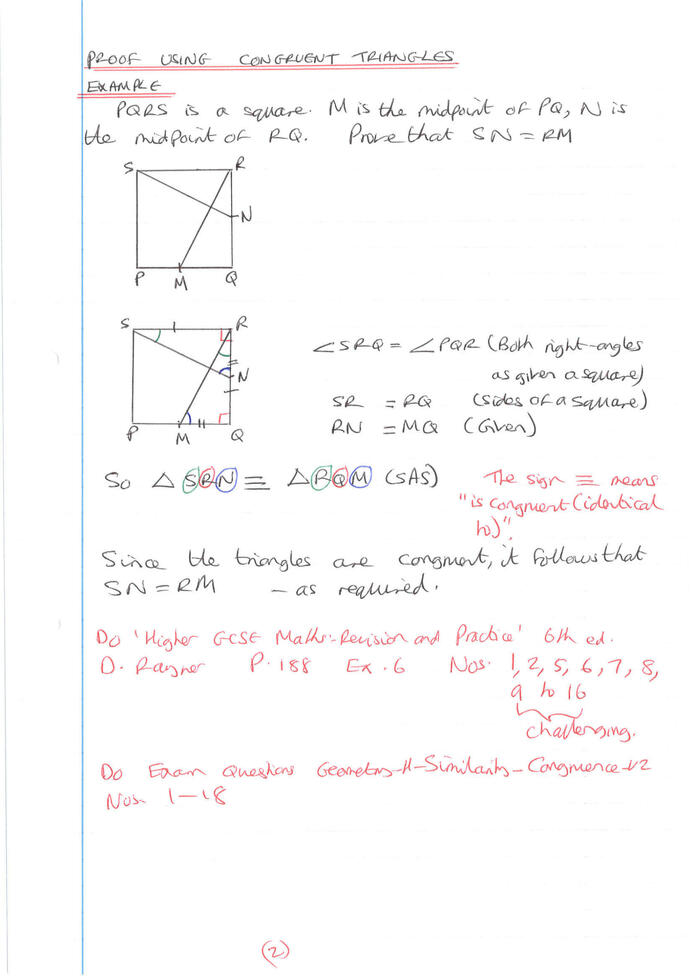 PROOF USING CONGRUENT TRIANGLES
EXAMPLE
PQRS is a square. M is the midpoint of PQ, N is
the midpoint of RQ. Prove that SN = RM
S R
N
P M Q
S R
N
P M Q
∠SRQ = ∠PQR (Both right-angles
as given a square)
SR = RQ (sides of a square)
RN = MQ (Given)
So △SRN ≡ △RQM (SAS)
The sign ≡ means
"is congruent (identical
to)".
Since the triangles are congruent, it follows that
SN = RM – as required.
Do 'Higher GCSE Maths:-Revision and Practice' 6th ed.
D. Rayner P. 188 Ex. 6 Nos. 1, 2, 5, 6, 7, 8,
9 to 16
challenging.
Do Exam Questions Geometry-H-Similarity-Congruence-v2
Nos. 1–18
(2)